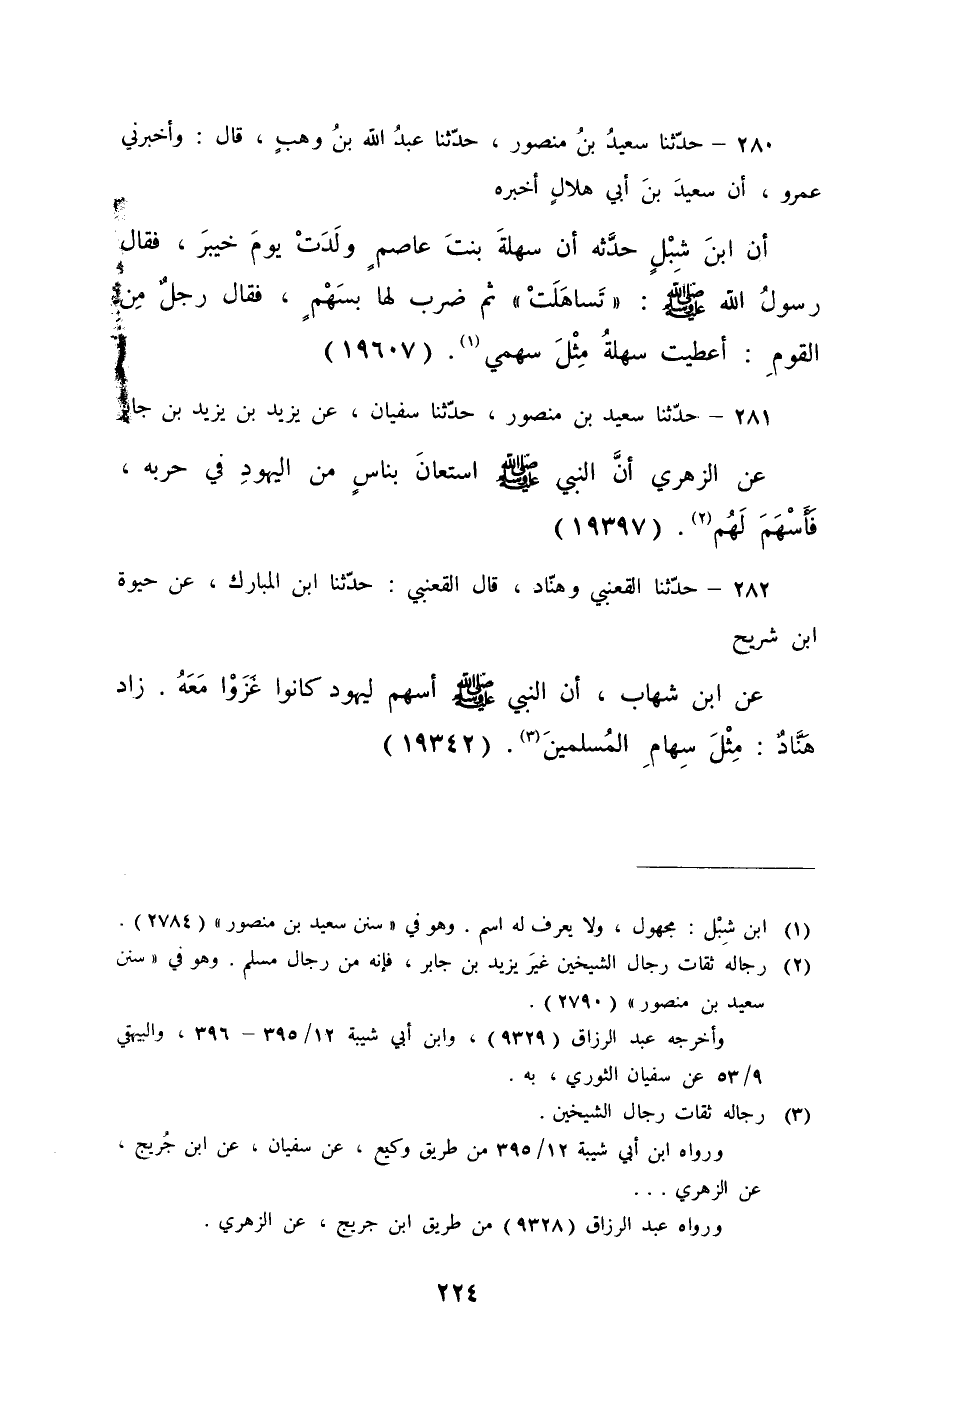 ٢٨٠ – حدّثنا سعيدُ بنُ منصور ، حدّثنا عبدُ الله بنُ وهبٍ ، قال : وأخبرني
عمرو ، أن سعيدَ بنَ أبي هلالٍ أخبره
أن ابنَ شِبْلٍ حدَّثه أن سهلةَ بنتَ عاصمٍ ولَدَتْ يومَ خيبرَ ، فقال
رسولُ الله ﷺ : « تَساهَلَتْ » ثم ضرب لها بسَهْمٍ ، فقال رجلٌ مِن
القومِ : أعطيت سهلةُ مِثْلَ سهمي(١) . (١٩٦٠٧)
٢٨١ – حدّثنا سعيد بن منصور ، حدّثنا سفيان ، عن يزيد بن يزيد بن جابر
عن الزهري أنَّ النبي ﷺ استعانَ بناسٍ من اليهودِ في حربه ،
فَأَسْهَمَ لَهُم(٢) . (١٩٣٩٧)
٢٨٢ – حدّثنا القعنبي وهنّاد ، قال القعنبي : حدّثنا ابن المبارك ، عن حيوة
ابن شريح
عن ابن شهاب ، أن النبي ﷺ أسهم ليهود كانوا غَزَوْا مَعَهُ . زاد
هَنَّادٌ : مِثْلَ سِهامِ المُسلمينَ(٣) . (١٩٣٤٢)
(١) ابن شِبْل : مجهول ، ولا يعرف له اسم . وهو في « سنن سعيد بن منصور » (٢٧٨٤) .
(٢) رجاله ثقات رجال الشيخين غيرَ يزيد بن جابر ، فإنه من رجال مسلم . وهو في « سنن
سعيد بن منصور » (٢٧٩٠) .
وأخرجه عبد الرزاق (٩٣٢٩) ، وابن أبي شيبة ١٢/ ٣٩٥ – ٣٩٦ ، والبيهقي
٩/ ٥٣ عن سفيان الثوري ، به .
(٣) رجاله ثقات رجال الشيخين .
ورواه ابن أبي شيبة ١٢/ ٣٩٥ من طريق وكيع ، عن سفيان ، عن ابن جُريج ،
عن الزهري . . .
ورواه عبد الرزاق (٩٣٢٨) من طريق ابن جريج ، عن الزهري .
٢٢٤